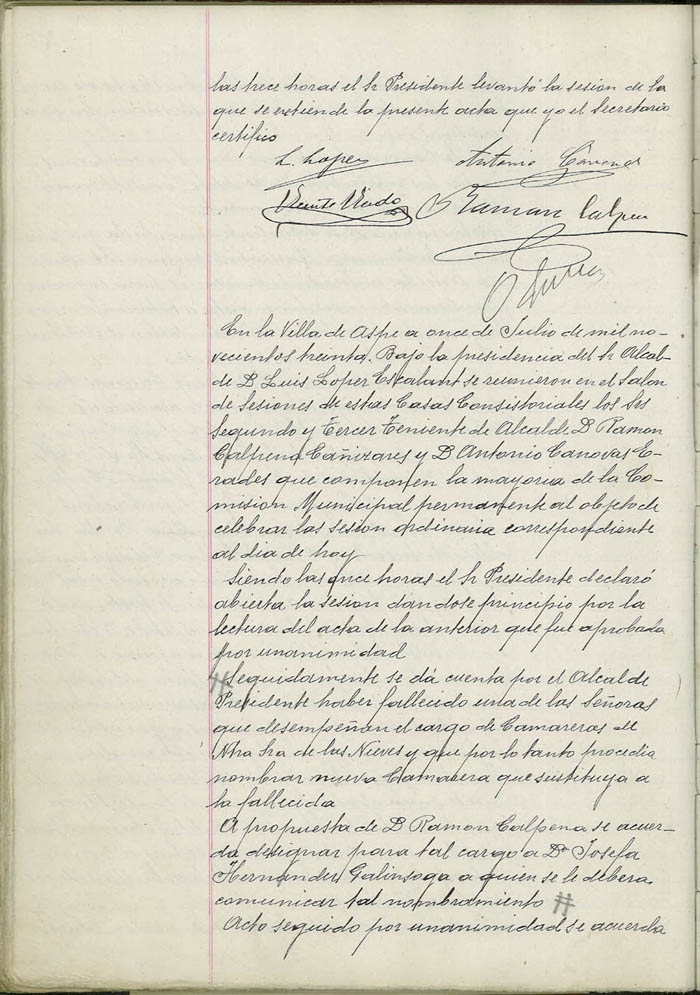 las trece horas el Sr Presidente levantó la sesion de la
que se extiende la presente acta que yo el Secretario
certifico
L. Lopez Antonio Cánovas
Vicente Ramon Calpena
En la Villa de Aspe a once de Julio de mil no-
vecientos treinta. Bajo la presidencia del Sr Alcal-
de D Luis Lopez Escalant se reunieron en el Salon
de Sesiones de estas Casas Consistoriales los Srs
Segundo y Tercer Teniente de Alcalde D Ramon
Calpena Cañizares y D Antonio Canovas E-
rades que componen la mayoria de la Co-
mision Municipal permanente al objeto de
celebrar las sesion ordinaria correspondiente
al dia de hoy
Siendo las once horas el Sr Presidente declaró
abierta la sesion dandose principio por la
lectura del acta de la anterior que fué aprobada
por unanimidad
# Seguidamente se dá cuenta por el Alcalde
Presidente haber fallecido una de las Señoras
que desempeñan el cargo de Camareras de
Ntra Sra de las Nieves y que por lo tanto procedia
nombrar nueva Camarera que sustituya a
la fallecida
A propuesta de D Ramon Calpena se acuer-
da designar para tal cargo a Dª Josefa
Hernandez Galinsoga a quien se le debera
comunicar tal nombramiento #
Acto seguido por unanimidad se acuerda